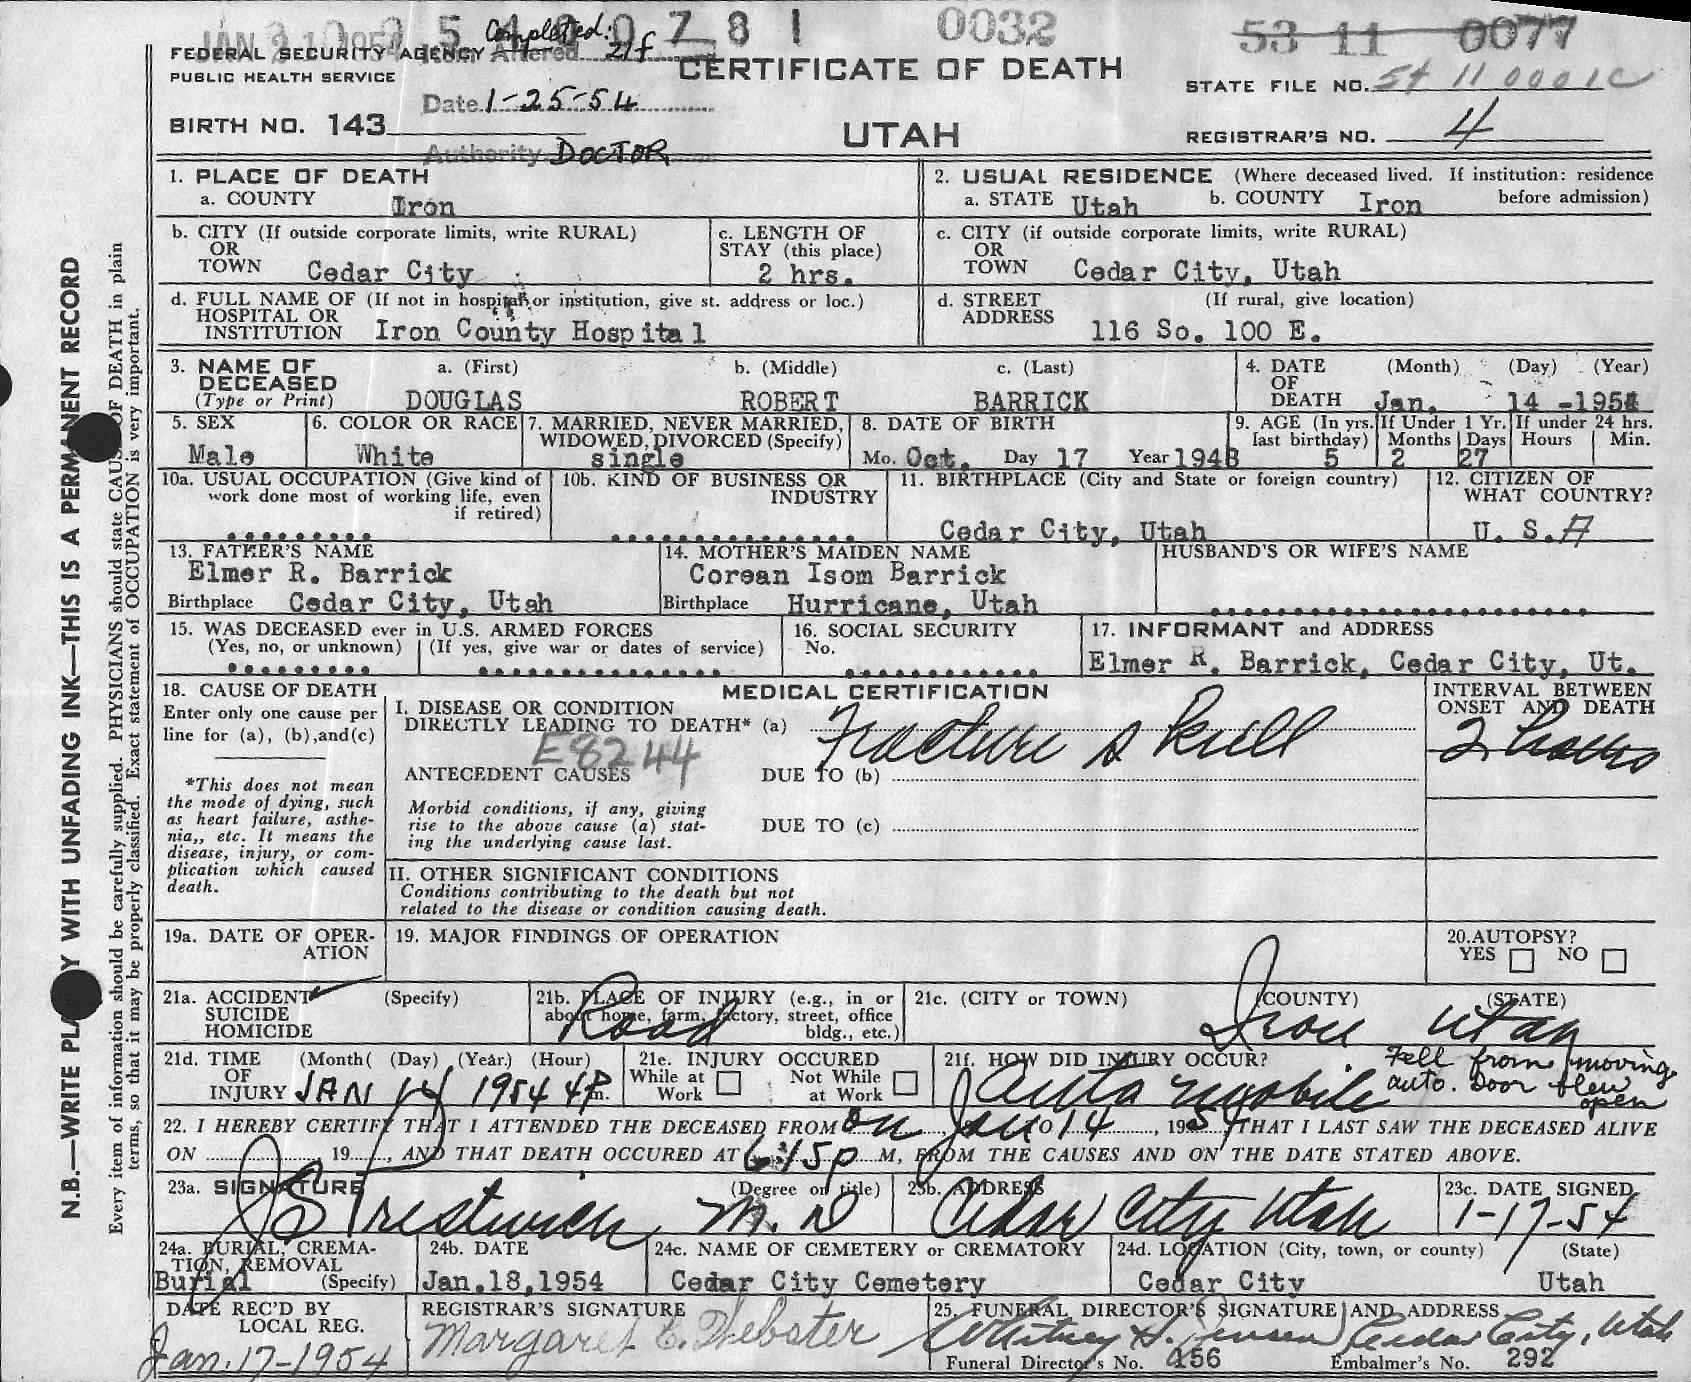 JAN 21 1954 0032 53 11 0077
FEDERAL SECURITY AGENCY Completed:
Item Altered 21f
PUBLIC HEALTH SERVICE
CERTIFICATE OF DEATH
STATE FILE NO. 54 11 0001C
Date 1-25-54
BIRTH NO. 143
UTAH
REGISTRAR'S NO. 4
Authority DOCTOR
1. PLACE OF DEATH
a. COUNTY Iron
2. USUAL RESIDENCE (Where deceased lived. If institution: residence before admission)
a. STATE Utah b. COUNTY Iron
b. CITY (If outside corporate limits, write RURAL)
OR
TOWN Cedar City
c. LENGTH OF
STAY (this place)
2 hrs.
c. CITY (if outside corporate limits, write RURAL)
OR
TOWN Cedar City, Utah
d. FULL NAME OF (If not in hospital or institution, give st. address or loc.)
HOSPITAL OR
INSTITUTION Iron County Hospital
d. STREET (If rural, give location)
ADDRESS
116 So. 100 E.
3. NAME OF
DECEASED
(Type or Print)
a. (First) b. (Middle) c. (Last)
DOUGLAS ROBERT BARRICK
4. DATE (Month) (Day) (Year)
OF
DEATH Jan. 14 -1954
5. SEX
Male
6. COLOR OR RACE
White
7. MARRIED, NEVER MARRIED,
WIDOWED, DIVORCED (Specify)
single
8. DATE OF BIRTH
Mo. Oct. Day 17 Year 1948
9. AGE (In yrs. last birthday)
5
If Under 1 Yr.
Months Days
2 27
If under 24 hrs.
Hours Min.
10a. USUAL OCCUPATION (Give kind of
work done most of working life, even
if retired)
10b. KIND OF BUSINESS OR
INDUSTRY
11. BIRTHPLACE (City and State or foreign country)
Cedar City, Utah
12. CITIZEN OF
WHAT COUNTRY?
U. S. A
13. FATHER'S NAME
Elmer R. Barrick
Birthplace Cedar City, Utah
14. MOTHER'S MAIDEN NAME
Corean Isom Barrick
Birthplace Hurricane, Utah
HUSBAND'S OR WIFE'S NAME
15. WAS DECEASED ever in U.S. ARMED FORCES
(Yes, no, or unknown) (If yes, give war or dates of service)
16. SOCIAL SECURITY
No.
17. INFORMANT and ADDRESS
Elmer R. Barrick, Cedar City, Ut.
18. CAUSE OF DEATH
Enter only one cause per
line for (a), (b),and(c)
*This does not mean
the mode of dying, such
as heart failure, asthe-
nia,, etc. It means the
disease, injury, or com-
plication which caused
death.
MEDICAL CERTIFICATION
I. DISEASE OR CONDITION
DIRECTLY LEADING TO DEATH* (a) Fracture skull
E8244
ANTECEDENT CAUSES DUE TO (b)
Morbid conditions, if any, giving
rise to the above cause (a) stat-
ing the underlying cause last.
DUE TO (c)
INTERVAL BETWEEN
ONSET AND DEATH
2 hours
II. OTHER SIGNIFICANT CONDITIONS
Conditions contributing to the death but not
related to the disease or condition causing death.
19a. DATE OF OPER-
ATION
19. MAJOR FINDINGS OF OPERATION
20.AUTOPSY?
YES NO
21a. ACCIDENT ✓ (Specify)
SUICIDE
HOMICIDE
21b. PLACE OF INJURY (e.g., in or
about home, farm, factory, street, office
bldg., etc.)
Road
21c. (CITY or TOWN) (COUNTY) (STATE)
Iron Utah
21d. TIME (Month( (Day) (Year) (Hour)
OF
INJURY JAN 14 1954 4 P.m.
21e. INJURY OCCURED
While at Work Not While at Work
21f. HOW DID INJURY OCCUR?
Automobile
Fell from moving
auto. Door flew
open
22. I HEREBY CERTIFY THAT I ATTENDED THE DECEASED FROM on Jan TO 14, 1954 THAT I LAST SAW THE DECEASED ALIVE
ON 19, AND THAT DEATH OCCURED AT 6:15 p M, FROM THE CAUSES AND ON THE DATE STATED ABOVE.
23a. SIGNATURE (Degree or title)
J S Prestwich M. D
23b. ADDRESS
Cedar City Utah
23c. DATE SIGNED
1-17-54
24a. BURIAL, CREMA-
TION, REMOVAL
Burial (Specify)
24b. DATE
Jan.18,1954
24c. NAME OF CEMETERY or CREMATORY
Cedar City Cemetery
24d. LOCATION (City, town, or county) (State)
Cedar City Utah
DATE REC'D BY
LOCAL REG.
Jan. 17-1954
REGISTRAR'S SIGNATURE
Margaret E. Webster
25. FUNERAL DIRECTOR'S SIGNATURE AND ADDRESS
Whitney H. Jensen Cedar City, Utah
Funeral Director's No. 456 Embalmer's No. 292
N.B.—WRITE PLAINLY WITH UNFADING INK—THIS IS A PERMANENT RECORD
Every item of information should be carefully supplied. PHYSICIANS should state CAUSE OF DEATH in plain
terms, so that it may be properly classified. Exact statement of OCCUPATION is very important.